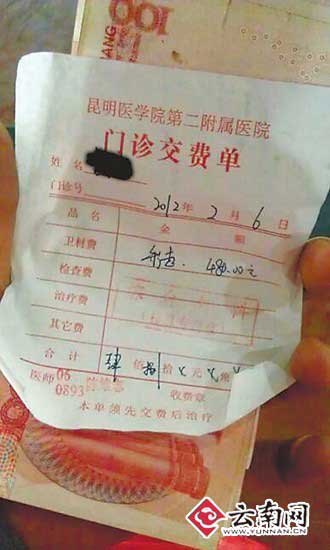 100
昆明医学院第二附属医院
门诊交费单
姓名
门诊号
2012年2月6日
品名 金额
卫材费 480.00元
检查费
治疗费
其它费
合计 肆佰捌拾 元 角
医师 06 0893 收费章
本单须先交费后治疗
云南网
WWW.YUNNAN.CN